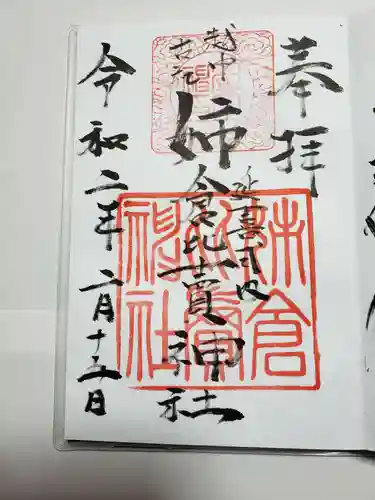 奉拝
越中
延喜式内
姉倉比賣神社
令和二年二月十五日
姉倉
比賣
神社